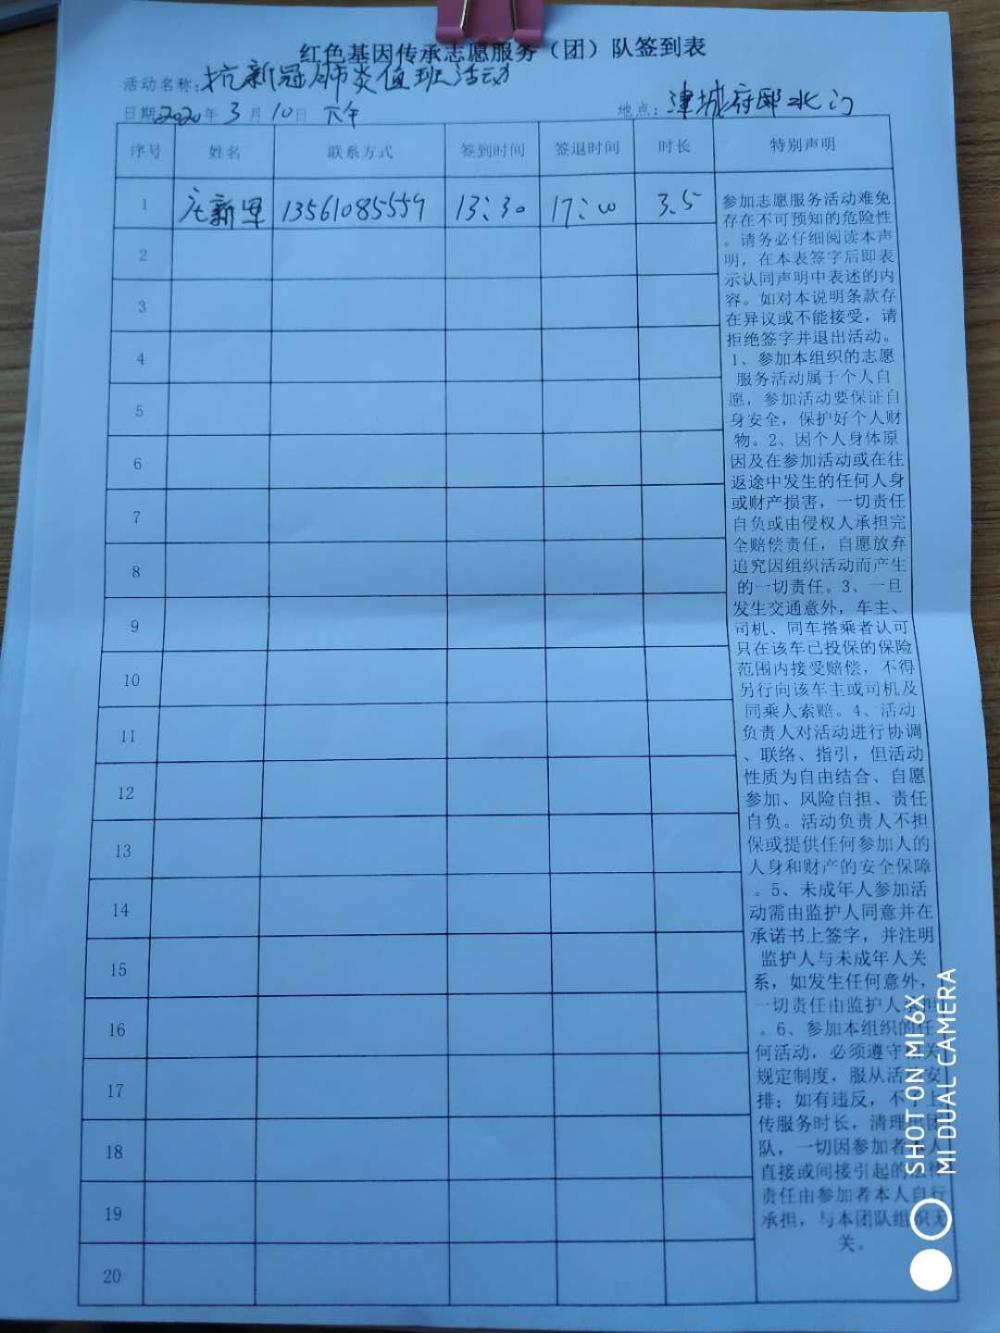 红色基因传承志愿服务（团）队签到表
活动名称：抗新冠肺炎值班活动
日期2020年3月10日 下午 地点：津城府邸北门
序号 姓名 联系方式 签到时间 签退时间 时长 特别声明
1 庄新军 13561085559 13:30 17:00 3.5
2
3
4
5
6
7
8
9
10
11
12
13
14
15
16
17
18
19
20
参加志愿服务活动难免
存在不可预知的危险性
。请务必仔细阅读本声
明，在本表签字后即表
示认同声明中表述的内
容。如对本说明条款存
在异议或不能接受，请
拒绝签字并退出活动。
1、参加本组织的志愿
服务活动属于个人自
愿，参加活动要保证自
身安全，保护好个人财
物。2、因个人身体原
因及在参加活动或在往
返途中发生的任何人身
或财产损害，一切责任
自负或由侵权人承担完
全赔偿责任，自愿放弃
追究因组织活动而产生
的一切责任。3、一旦
发生交通意外，车主、
司机、同车搭乘者认可
只在该车已投保的保险
范围内接受赔偿，不得
另行向该车主或司机及
同乘人索赔。4、活动
负责人对活动进行协调
、联络、指引，但活动
性质为自由结合、自愿
参加、风险自担、责任
自负。活动负责人不担
保或提供任何参加人的
人身和财产的安全保障
。5、未成年人参加活
动需由监护人同意并在
承诺书上签字，并注明
监护人与未成年人关
系，如发生任何意外，
一切责任由监护人承担
。6、参加本组织的任
何活动，必须遵守相关
规定制度，服从活动安
排；如有违反，不予上
传服务时长，清理出团
队，一切因参加者本人
直接或间接引起的法律
责任由参加者本人自行
承担，与本团队组织无
关。
SHOT ON MI 6X
MI DUAL CAMERA